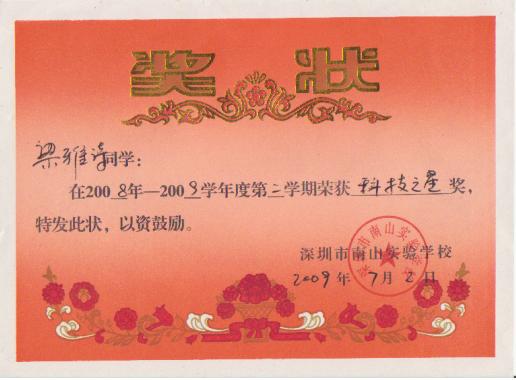 奖状
梁雅诗同学：
在2008年—2009学年度第二学期荣获 科技之星 奖，
特发此状，以资鼓励。
深圳市南山实验学校
2009年7月2日